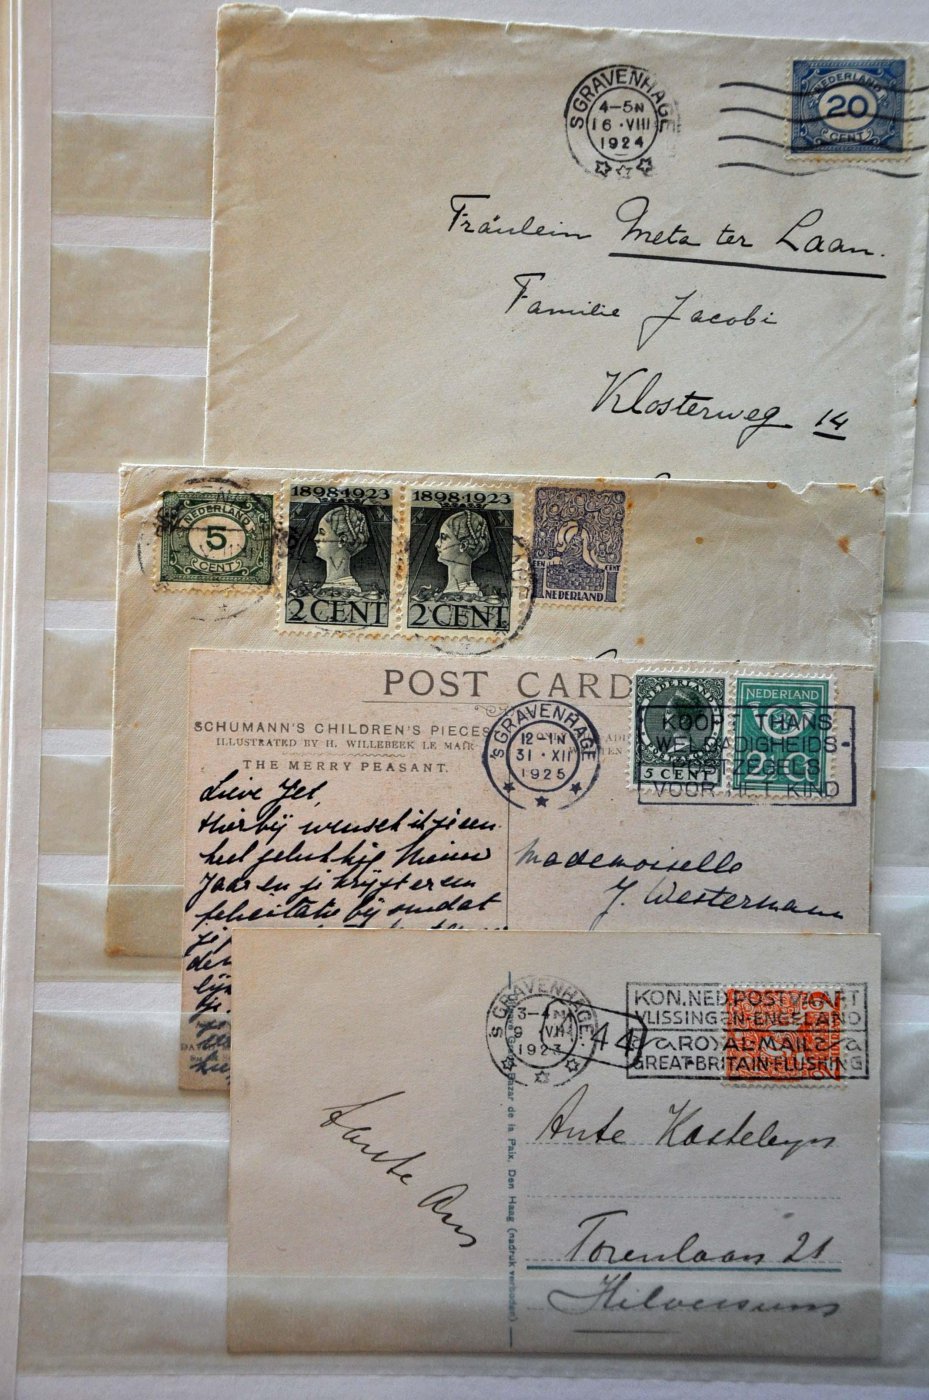 'SGRAVENHAGE
4-5N
16·VIII
1924
NEDERLAND
20
CENT
Fräulein Meta ter Laan.
Familie Jacobi
Klosterweg 14
NEDERLAND
5
CENT
1898·1923
2 CENT
1898·1923
2 CENT
EEN CENT
NEDERLAND
POST CARD
SCHUMANN'S CHILDREN'S PIECES
ILLUSTRATED BY H. WILLEBEEK LE MAIR
THE MERRY PEASANT.
'SGRAVENHAGE
31·XII
1925
NEDERLAND
5 CENT
NEDERLAND
2½ Ct
KOOPT THANS
WELDADIGHEIDS-
POSTZEGELS
VOOR HET KIND
Lieve Jet,
Hierbij wensch ik je een
heel gelukkig Nieuw
Jaar en je krijgt er een
felicitatie bij omdat
Mademoiselle
J. Westermann
'SGRAVENHAGE
3-4N
9 VII
1923
44
KON. NED. POSTVAART
VLISSINGEN-ENGELAND
ROYAL MAIL
GREAT-BRITAIN-FLUSHING
Bazar de la Paix, Den Haag (nadruk verboden)
Tante Ans
Ante Kasteleyn
Torenlaan 21
Hilversum